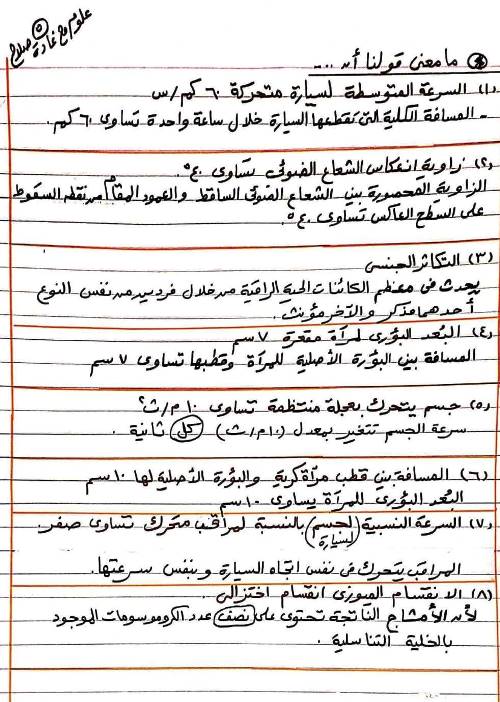 علوم مع غادة صلاح
٥
ما معنى قولنا أن ....
(١) السرعة المتوسطة لسيارة متحركة ٦٠ كم/س
- المسافة الكلية التى تقطعها السيارة خلال ساعة واحدة تساوى ٦٠ كم.
(٢) زاوية انعكاس الشعاع الضوئى تساوى ٤٠°.
الزاوية المحصورة بين الشعاع الضوئى الساقط والعمود المقام من نقطة السقوط
على السطح العاكس تساوى ٤٠°
(٣) التكاثر الجنسى
يحدث فى معظم الكائنات الحية الراقية من خلال فردين من نفس النوع
أحدهما مذكر والآخر مؤنث.
(٤) البُعد البؤرى لمرآة مقعرة ٧ سم
المسافة بين البؤرة الأصلية للمرآة وقطبها تساوى ٧ سم
(٥) جسم يتحرك بعجلة منتظمة تساوى ١٠ م/ث٢
سرعة الجسم تتغير بمعدل (١٠ م/ث) كل ثانية.
(٦) المسافة بين قطب مرآة كرية والبؤرة الأصلية لها ١٠ سم
البُعد البؤرى للمرآة يساوى ١٠ سم
(٧) السرعة النسبية (لجسم) بالنسبة لمراقب متحرك تساوى صفر.
لسيارة
المراقب يتحرك فى نفس اتجاه السيارة وبنفس سرعتها.
(٨) الانقسام الميوزى انقسام اختزالى.
لأن الأمشاج الناتجة تحتوى على نصف عدد الكروموسومات الموجود
بالخلية التناسلية.